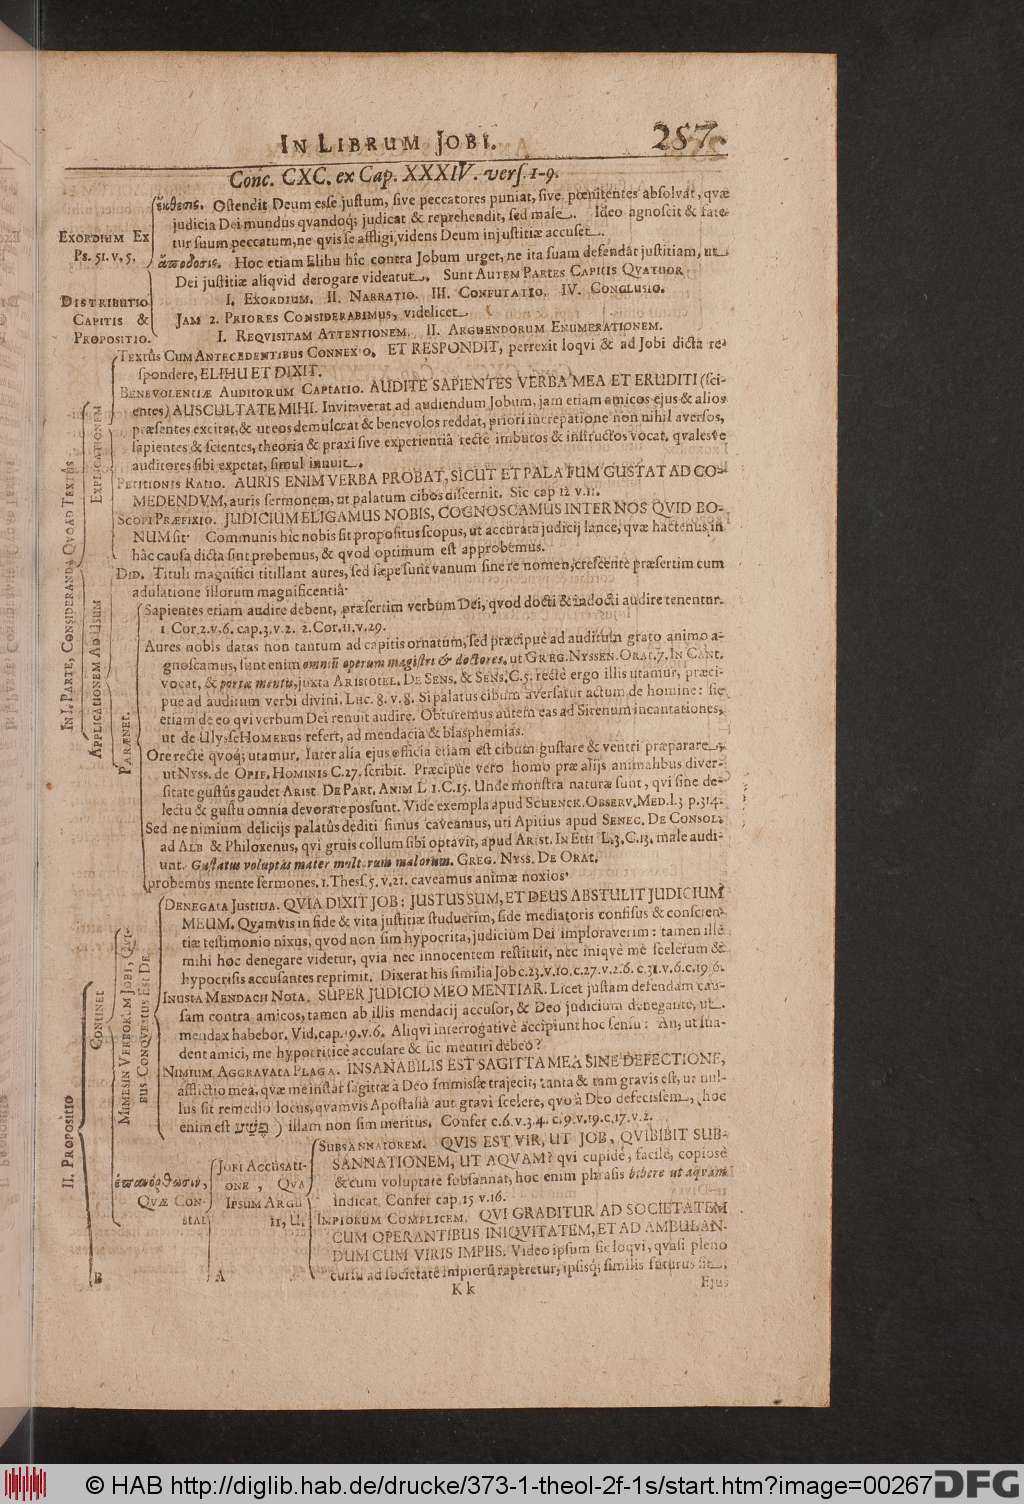 IN LIBRUM JOBI. 257
Conc. CXC. ex Cap. XXXIV. vers. 1-9.
EXORDIUM EX
Ps. 51. v. 5.
ἔκθεσις. Ostendit Deum esse justum, sive peccatores puniat, sive pœnitentes absolvat, qvæ
judicia Dei mundus qvandoq; judicat & reprehendit, sed male. Ideo agnoscit & fate-
tur suum peccatum, ne qvis se affligi, videns Deum injustitiæ accuset.
ἀπόδοσις. Hoc etiam Elihu hîc contra Jobum urget, ne ita suam defendât justitiam, ut
Dei justitiæ aliqvid derogare videatur. SUNT AUTEM PARTES CAPITIS QVATUOR
DISTRIBUTIO
CAPITIS &
PROPOSITIO.
I. EXORDIUM. II. NARRATIO. III. CONFUTATIO. IV. CONCLUSIO.
JAM 2. PRIORES CONSIDERABIMUS, videlicet
I. REQVISITAM ATTENTIONEM. II. ARGUENDORUM ENUMERATIONEM.
IN I. PARTE, CONSIDERANDA QVOAD TEXTUS
EXPLICATIONEM
TEXTÛS CUM ANTECEDENTIBUS CONNEXIO. ET RESPONDIT, perrexit loqvi & ad Jobi dicta re-
spondere, ELIHU ET DIXIT.
BENEVOLENTIÆ AUDITORUM CAPTATIO. AUDITE SAPIENTES VERBA MEA ET ERUDITI (sci-
entes) AUSCULTATE MIHI. Invitaverat ad audiendum Jobum, jam etiam amicos ejus & alios
præsentes excitat, & ut eos demulceat & benevolos reddat, priori increpatione non nihil aversos,
sapientes & scientes, theoria & praxi sive experientiâ rectè imbutos & instructos vocat, qvales ve
auditores sibi expetat, simul innuit.
PETITIONIS RATIO. AURIS ENIM VERBA PROBAT, SICUT ET PALATUM GUSTAT AD CO-
MEDENDVM, auris sermonem, ut palatum cibos discernit. Sic cap 12 v. 11.
SCOPI PRÆFIXIO. JUDICIUM ELIGAMUS NOBIS, COGNOSCAMUS INTER NOS QVID BO-
NUM sit. Communis hîc nobis sit propositus scopus, ut accuratâ judicij lance, qvæ hactenus in
hâc causa dicta sint probemus, & qvod optimum est approbemus.
APPLICATIONEM AD USUM
DID. Tituli magnifici titillant aures, sed sæpe sunt vanum sine re nomen, crescente præsertim cum
adulatione illorum magnificentiâ.
PARÆNET.
Sapientes etiam audire debent, præsertim verbum Dei, qvod docti & indocti audire tenentur.
1 Cor. 2. v. 6. cap. 3. v. 2. 2. Cor. 11. v. 29.
Aures nobis datas non tantum ad capitis ornatum, sed præcipuè ad auditum grato animo a-
gnoscamus, sunt enim omniũ operum magistri & doctores, ut GREG. NYSSEN. ORAT. 7. IN CANT.
vocat, & portæ mentis, juxta ARISTOTEL. DE SENS. & SENS. C. 5. rectè ergo illis utamur, præci-
pue ad auditum verbi divini. Luc. 8. v. 8. Si palatus cibum aversatur actum de homine: sic
etiam de eo qvi verbum Dei renuit audire. Obturemus autem eas ad Sirenum incantationes,
ut de Ulysse HOMERUS refert, ad mendacia & blasphemias.
Ore rectè qvoq; utamur. Inter alia ejus officia etiam est cibum gustare & ventri præparare,
ut NYSS. de OPIF. HOMINIS C. 27. scribit. Præcipue vero homo præ alijs animalibus diver-
sitate gustûs gaudet ARIST. DE PART. ANIM L 1. C. 15. Unde monstra naturæ sunt, qvi sine de-
lectu & gustu omnia devorare possunt. Vide exempla apud SCHENCK. OBSERV. MED. l. 3 p. 314.
Sed ne nimium delicijs palatûs dediti simus caveamus, uti Apitius apud SENEC. DE CONSOL.
ad ALB & Philoxenus, qvi gruis collum sibi optavit, apud ARIST. IN ETH L. 3. C. 13. male audi-
unt. Gustatus voluptas mater mult rum malorum. GREG. NYSS. DE ORAT.
probemus mente sermones. 1. Thess. 5. v. 21. caveamus animæ noxios
II. PROPOSITIO
CONTINET
MIMESIN VERBORUM JOBI, QVI-
BUS CONQVESTUS EST DE
DENEGATA JUSTITIA. QVIA DIXIT JOB: JUSTUS SUM, ET DEUS ABSTULIT JUDICIUM
MEUM. Qvamvis in fide & vita justitiæ studuerim, fide mediatoris confisus & conscien-
tiæ testimonio nixus, qvod non sim hypocrita, judicium Dei imploraverim: tamen ille
mihi hoc denegare videtur, qvia nec innocentem restituit, nec iniqvè mè scelerum &
hypocrisis accusantes reprimit. Dixerat his similia Job c. 23. v. 10. c. 27. v. 2. 6. c. 31. v. 6. c. 19. 6.
INUSTA MENDACII NOTA. SUPER JUDICIO MEO MENTIAR. Licet justam defendam cau-
sam contra amicos, tamen ab illis mendacij accusor, & Deo judicium denegante, ut
mendax habebor. Vid. cap. 19. v. 6. Aliqvi interrogativè accipiunt hoc sensu: An, ut sua-
dent amici, me hypocriticè accusare & sic mentiri debeo?
NIMIUM AGGRAVATA PLAGA. INSANABILIS EST SAGITTA MEA SINE DEFECTIONE,
afflictio mea, qvæ me instar sagittæ à Deo immissæ trajecit, tanta & tam gravis est, ut nul-
lus sit remedio locus, qvamvis Apostasiâ aut gravi scelere, qvo à Deo defecissem, (hoc
enim est פשע) illam non sim meritus. Confer c. 6. v. 3. 4. c. 9. v. 19. c. 17. v. 2.
ἐπανόρθωσιν,
QVÆ CON-
STAT
JOBI ACCUSATI-
ONE, QVA
IPSUM ARGU
IT, UT
SUBSANNATOREM. QVIS EST VIR, UT JOB, QVI BIBIT SUB-
SANNATIONEM, UT AQVAM? qvi cupidè, facilè, copiosè
& cum voluptate subsannat, hoc enim phrasis bibere ut aquam
indicat. Confer cap. 15 v. 16.
IMPIORUM COMPLICEM. QVI GRADITUR AD SOCIETATEM
CUM OPERANTIBUS INIQVITATEM, ET AD AMBULAN-
DUM CUM VIRIS IMPIIS. Video ipsum sic loqvi, qvasi pleno
cursu ad societatẽ impiorũ raperetur, ipsisq; similis futurus sit,
B A
K k Ejus
© HAB http://diglib.hab.de/drucke/373-1-theol-2f-1s/start.htm?image=00267 DFG